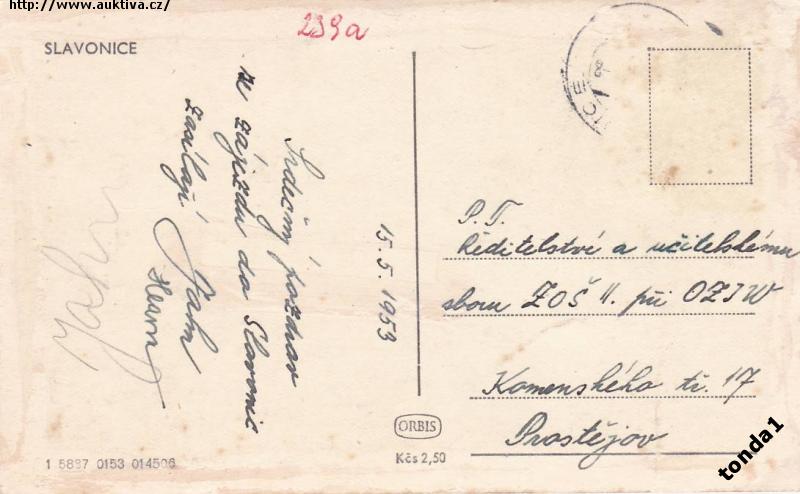 http://www.auktiva.cz/
239a
SLAVONICE
Srdečný pozdrav
ze zájezdu do Slavonic
zasílají
15.5.1953
P. T.
Ředitelství a učitelskému
sboru ZOŠ II. při OZIW
Komenského tř. 17
Prostějov
ORBIS
Kčs 2,50
1 5887 0153 014506
tonda1